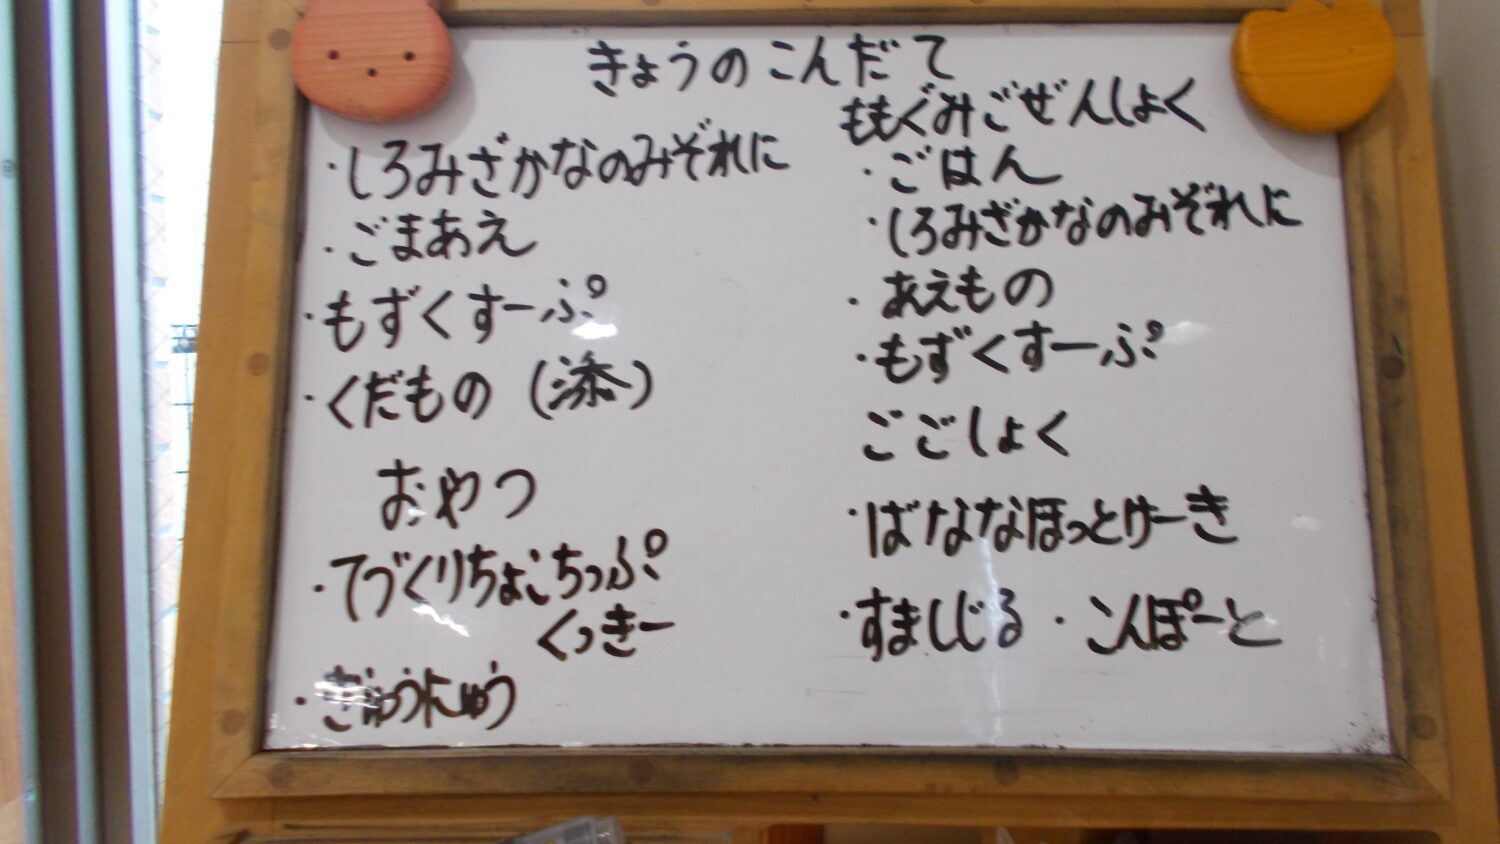 きょうのこんだて
・しろみざかなのみぞれに
・ごまあえ
・もずくすーぷ
・くだもの（添）
おやつ
・てづくりちょこちっぷ
くっきー
・ぎゅうにゅう
ももぐみごぜんしょく
・ごはん
・しろみざかなのみぞれに
・あえもの
・もずくすーぷ
ごごしょく
・ばななほっとけーき
・すましじる・こんぽーと